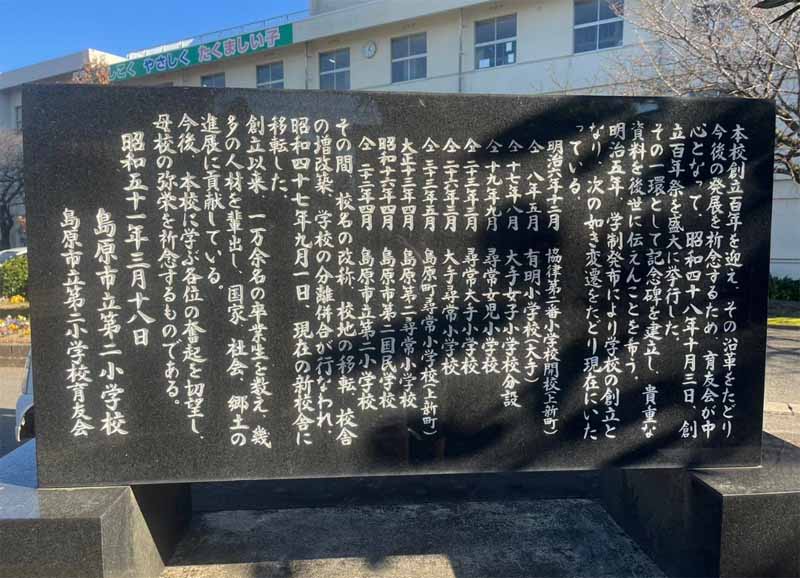 しこく やさしく たくましい子
本校創立百年を迎え、その沿革をたどり
今後の発展を祈念するため、育友会が中
心となって、昭和四十八年十月三日、創
立百年祭を盛大に挙行した。
その一環として記念碑を建立し、貴重な
資料を後世に伝えんことを希う。
明治五年、学制発布により学校の創立と
なり、次の如き変遷をたどり現在にいた
っている。
明治六年十二月 協律第二番小学校開校(上新町)
仝 八年五月 有明小学校(大手)
仝 十七年八月 大手女子小学校分設
仝 十九年九月 尋常女児小学校
仝 二十三年四月 尋常大手小学校
仝 二十六年三月 大手尋常小学校
仝 三十三年五月 島原町尋常小学校(上新町)
大正十三年四月 島原第一尋常小学校
昭和十六年四月 島原市第二国民学校
仝 二十二年四月 島原市立第二小学校
その間、校名の改称、校地の移転、校舎
の増改築、学校の分離併合が行なわれ、
昭和四十七年九月一日、現在の新校舎に
移転した。
創立以来、一万余名の卒業生を数え、幾
多の人材を輩出し、国家、社会、郷土の
進展に貢献している。
今後、本校に学ぶ各位の奮起を切望し、
母校の弥栄を祈念するものである。
昭和五十一年三月十八日
島原市立第二小学校
島原市立第二小学校育友会